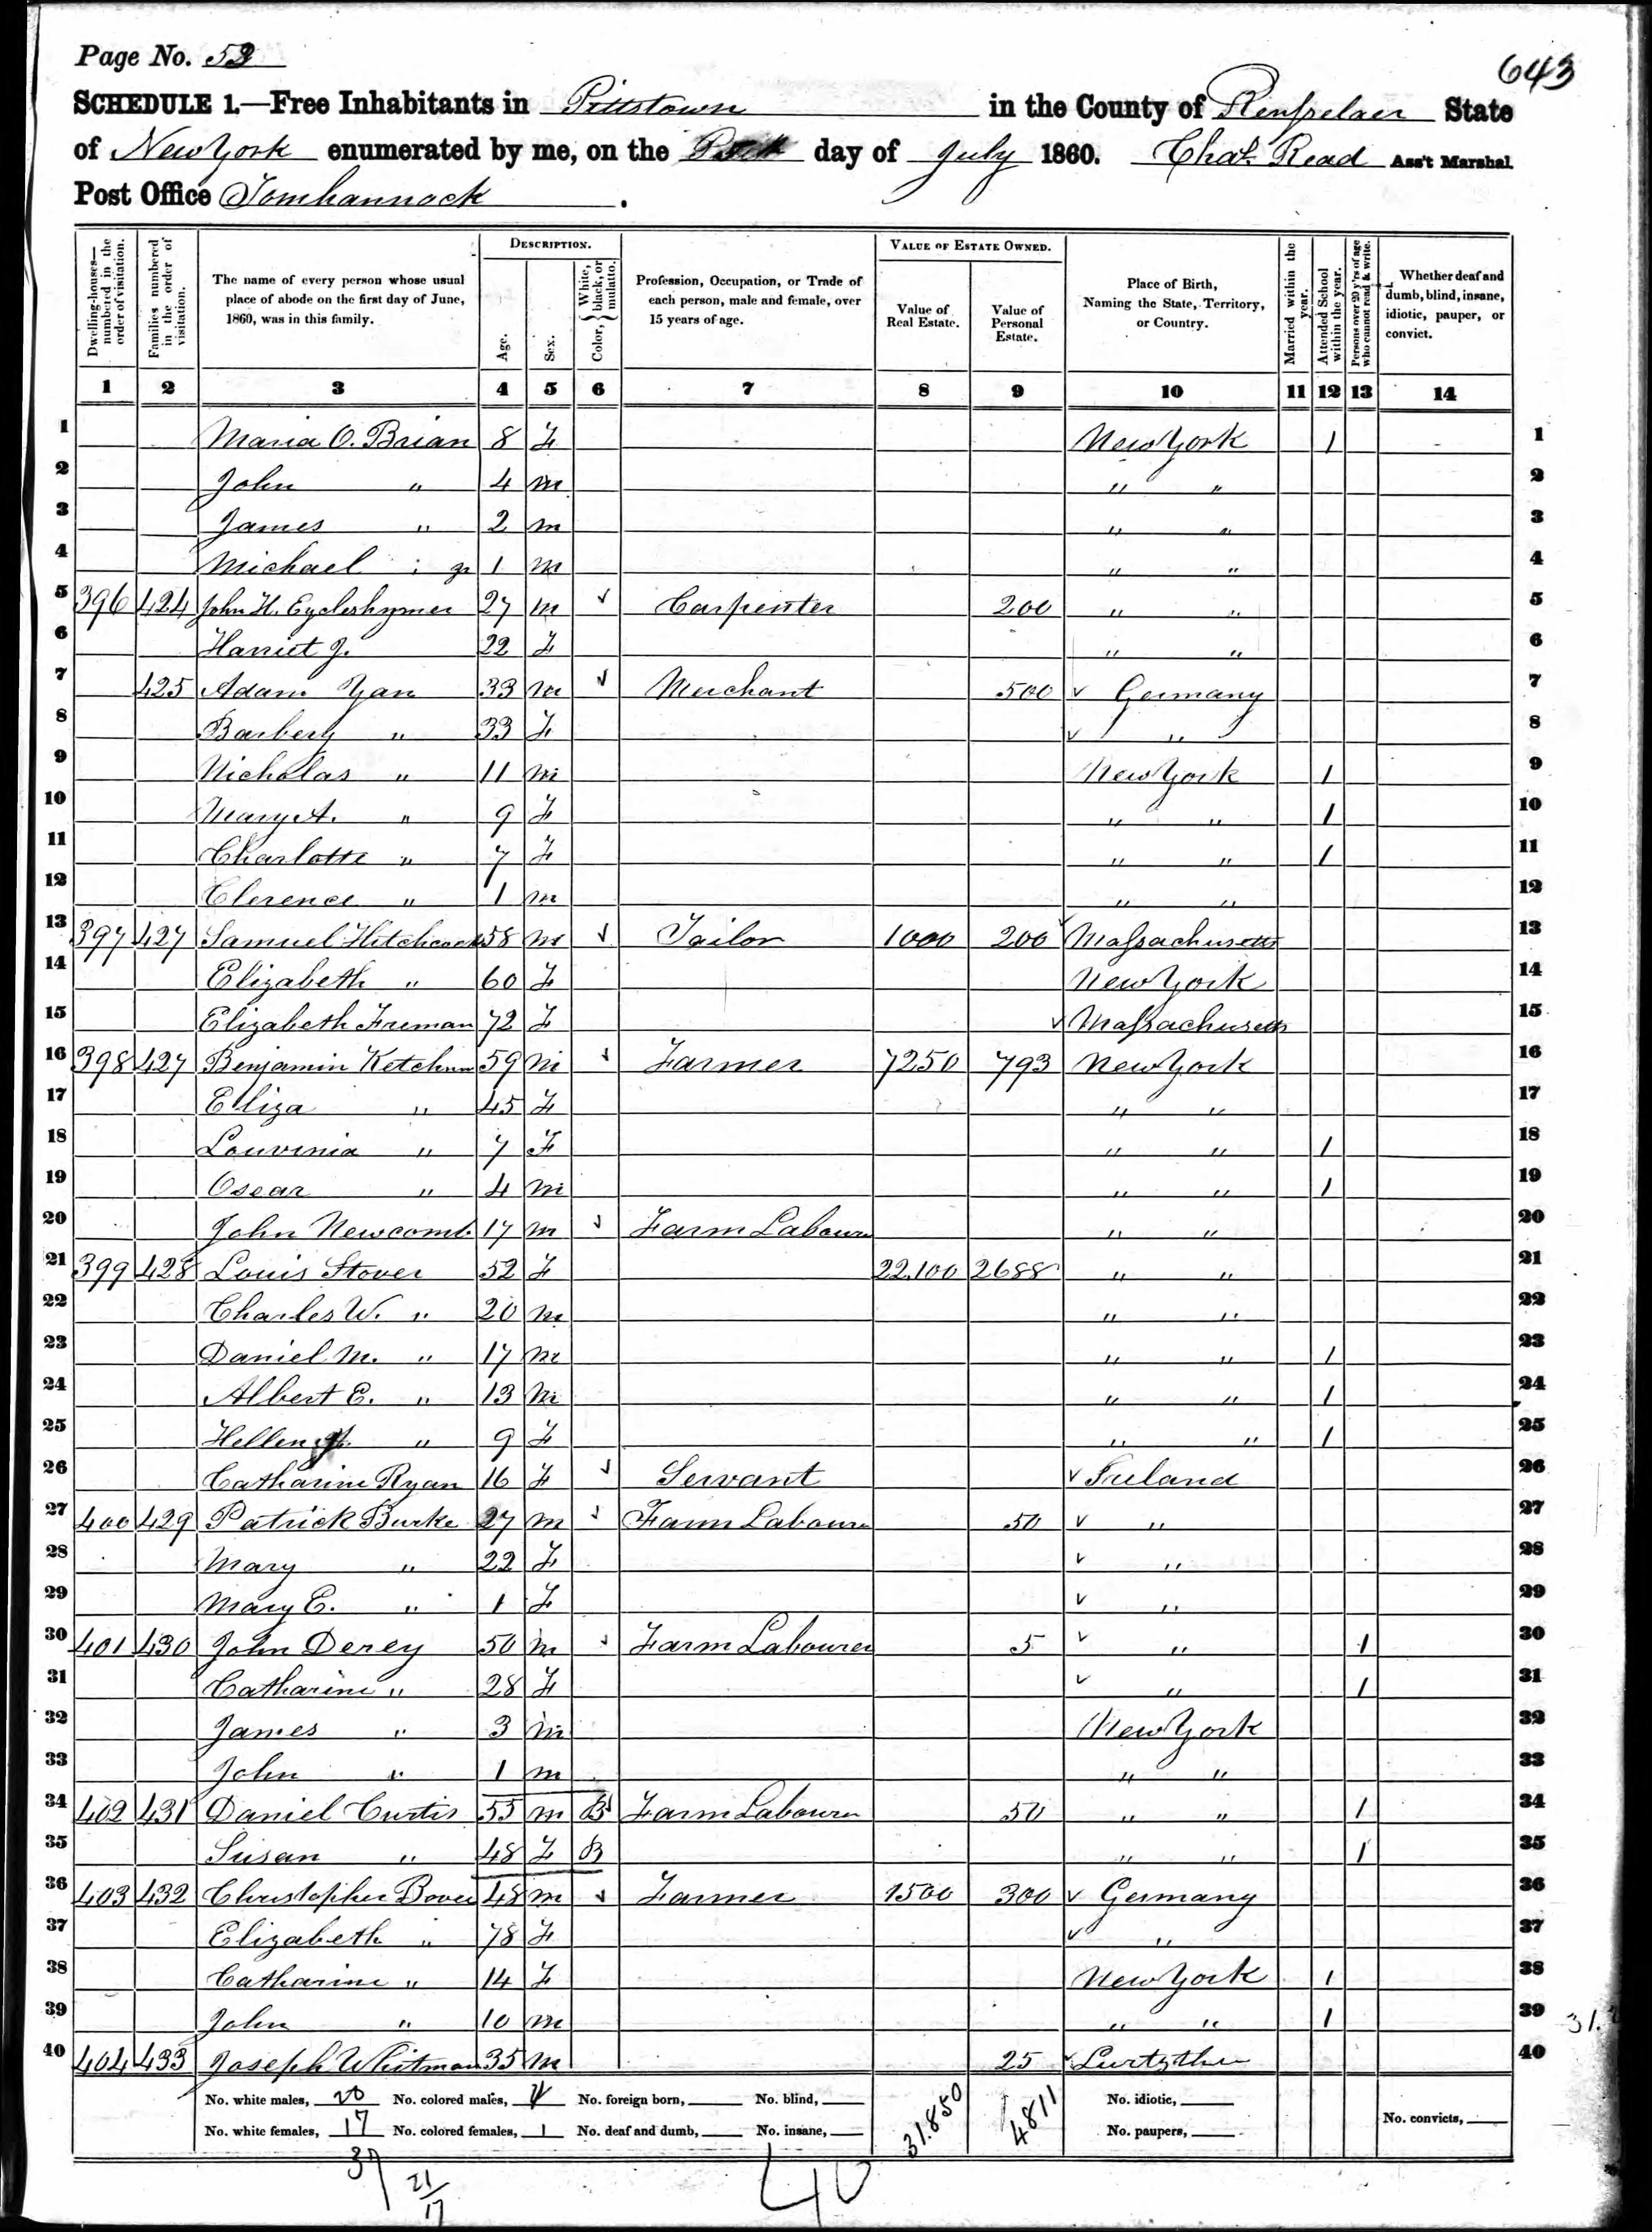 Page No. 52
643
SCHEDULE 1.—Free Inhabitants in Pittstown in the County of Rensselaer State
of New York enumerated by me, on the day of July 1860. Chas. Read Ass't Marshal.
Post Office Tomhannock .
Dwelling-houses—numbered in the order of visitation.
Families numbered in the order of visitation.
The name of every person whose usual place of abode on the first day of June, 1860, was in this family.
DESCRIPTION.
Age.
Sex.
Color, { White, black, or mulatto.
Profession, Occupation, or Trade of each person, male and female, over 15 years of age.
VALUE OF ESTATE OWNED.
Value of Real Estate.
Value of Personal Estate.
Place of Birth, Naming the State, Territory, or Country.
Married within the year.
Attended School within the year.
Persons over 20 y'rs of age who cannot read & write.
Whether deaf and dumb, blind, insane, idiotic, pauper, or convict.
1 2 3 4 5 6 7 8 9 10 11 12 13 14
1 Maria O. Brian 8 F New York 1 1
2 John " 4 m " " 2
3 James " 2 m " " 3
4 Michael " 1 m " " 4
5 396 424 John H. Eycleshymer 27 m ✓ Carpenter 200 " " 5
6 Harriet J. 22 F " " 6
7 425 Adam Yan 33 m ✓ Merchant 500 ✓ Germany 7
8 Barbery " 33 F ✓ " 8
9 Nicholas " 11 m New York 1 9
10 Mary A. " 9 F " " 1 10
11 Charlotte " 7 F " " 1 11
12 Clerence " 1 m " " 12
13 397 427 Samuel Hitchcock 58 m ✓ Tailor 1000 200 ✓ Massachusetts 13
14 Elizabeth " 60 F New York 14
15 Elizabeth Freman 72 F ✓ Massachusetts 15
16 398 427 Benjamin Ketchum 59 m ✓ Farmer 7250 793 New York 16
17 Eliza " 45 F " " 17
18 Louvinia " 7 F " " 1 18
19 Oscar " 4 m " " 1 19
20 John Newcomb 17 m ✓ Farm Labourer " " 20
21 399 428 Louis Stover 52 F 22,100 2688 " " 21
22 Charles W. " 20 m " " 22
23 Daniel M. " 17 m " " 1 23
24 Albert E. " 13 m " " 1 24
25 Hellen " 9 F " " 1 25
26 Catharine Ryan 16 F ✓ Servant ✓ Ireland 26
27 400 429 Patrick Burke 27 m ✓ Farm Labourer 50 ✓ " 27
28 Mary " 22 F ✓ " 28
29 Mary E. " 1 F ✓ " 29
30 401 430 John Derey 50 m ✓ Farm Labourer 5 ✓ " 1 30
31 Catharine " 28 F ✓ " 1 31
32 James " 3 m New York 32
33 John " 1 m " " 33
34 402 431 Daniel Curtis 55 m B Farm Labourer 50 " " 1 34
35 Susan " 48 F B " " 1 35
36 403 432 Christopher Bover 48 m ✓ Farmer 1500 300 ✓ Germany 36
37 Elizabeth " 78 F ✓ " 37
38 Catharine " 14 F New York 1 38
39 John " 10 m " " 1 39
40 404 433 Joseph Whitman 35 m 25 40
No. white males, 20 No. colored males, No. foreign born, No. blind, 31.850 4811 No. idiotic,
No. white females, 17 No. colored females, 1 No. deaf and dumb, No. insane, No. paupers, No. convicts,
37 21/17 40